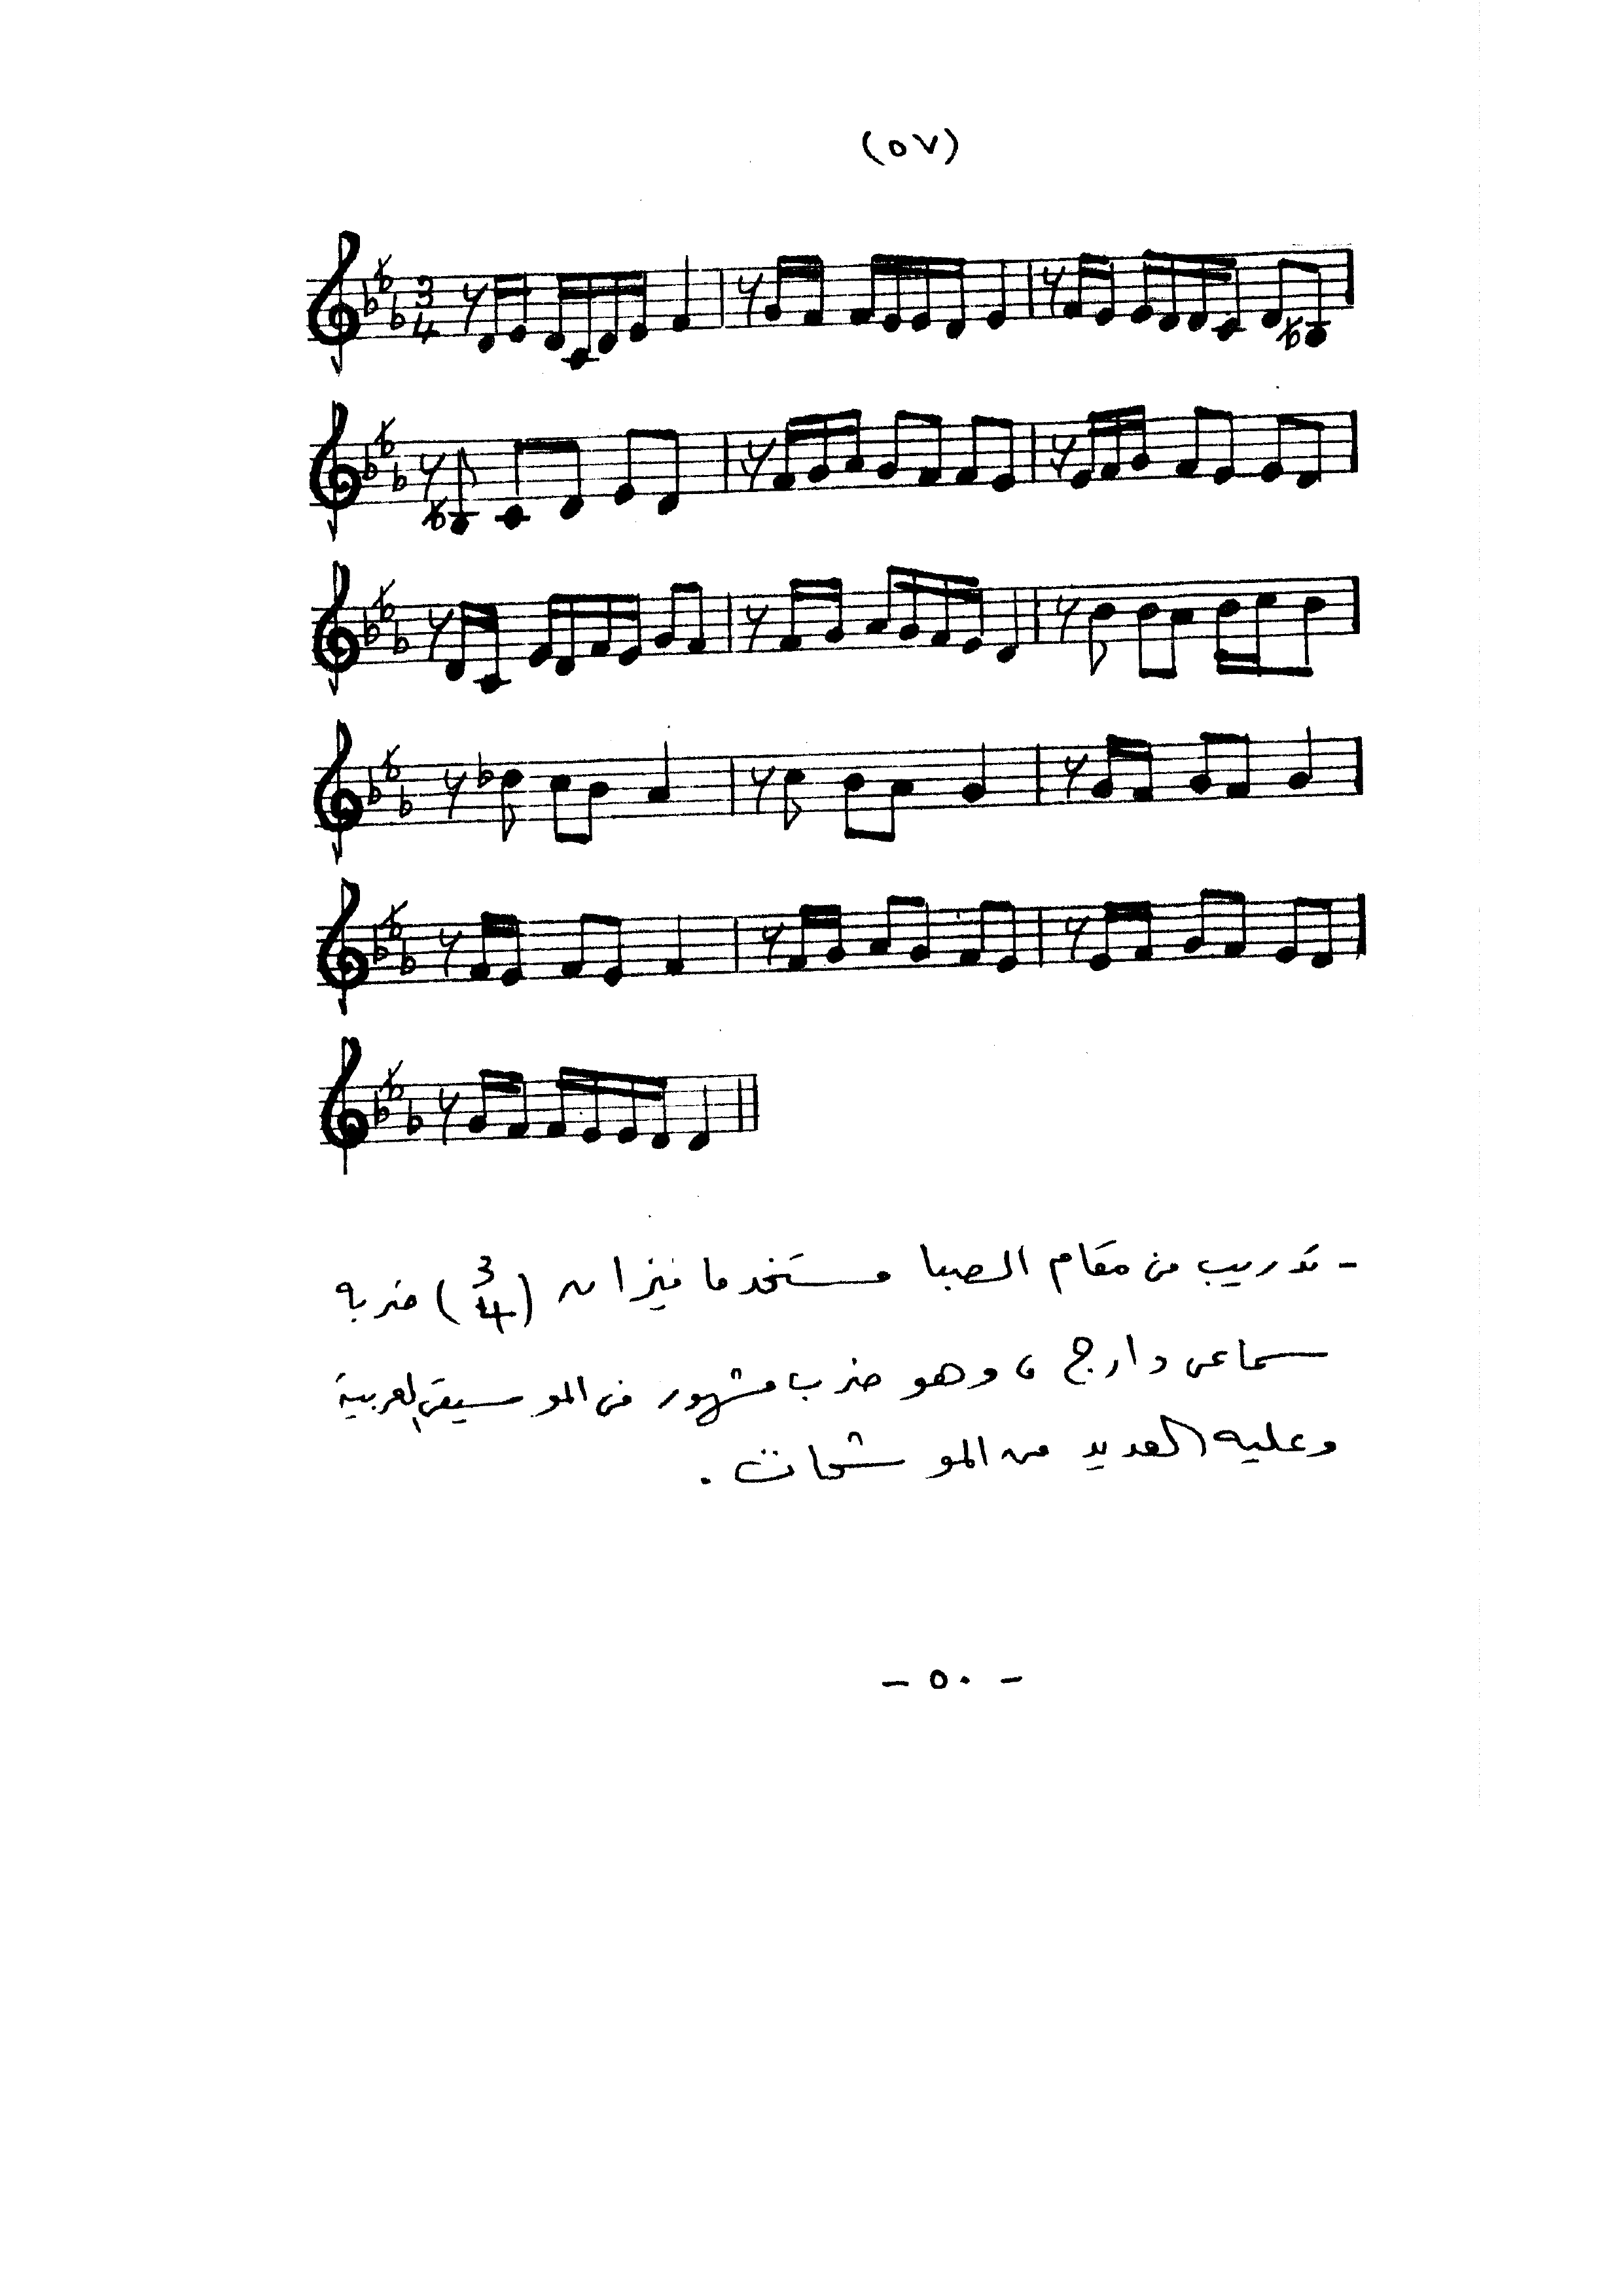 (٥٧)
3
4
- تدريب من مقام الصبا مستخدما ميزان (3/4) ضربه
سماعى دارج ، وهو ضرب مشهور فى الموسيقى العربية
وعليه العديد من الموشحات .
- ٥٠ -